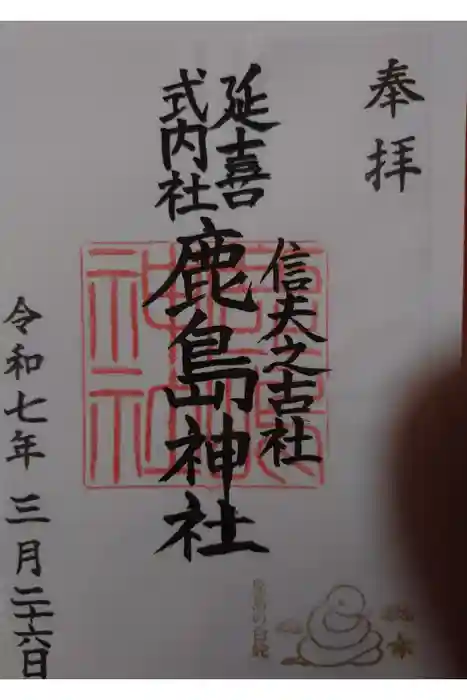 奉拝
信夫之古社
延喜
式内社
鹿島神社
令和七年三月二十六日